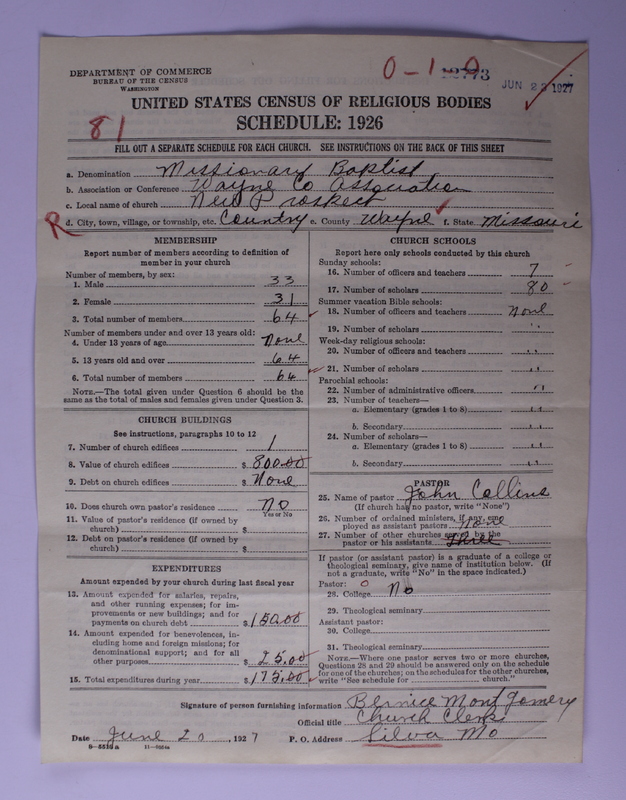 DEPARTMENT OF COMMERCE
BUREAU OF THE CENSUS
WASHINGTON
0-1-0
12773
JUN 23 1927
UNITED STATES CENSUS OF RELIGIOUS BODIES
81
SCHEDULE: 1926
FILL OUT A SEPARATE SCHEDULE FOR EACH CHURCH. SEE INSTRUCTIONS ON THE BACK OF THIS SHEET
a. Denomination Missionary Baptist
b. Association or Conference Wayne Co Association
c. Local name of church New Prospect
R
d. City, town, village, or township, etc. Country e. County Wayne f. State Missouri
MEMBERSHIP
Report number of members according to definition of
member in your church
Number of members, by sex:
1. Male 33
2. Female 31
3. Total number of members 64
Number of members under and over 13 years old:
4. Under 13 years of age None
5. 13 years old and over 64
6. Total number of members 64
NOTE.—The total given under Question 6 should be
same as the total of males and females given under Question 3.
CHURCH BUILDINGS
See instructions, paragraphs 10 to 12
7. Number of church edifices 1
8. Value of church edifices $ 800.00
9. Debt on church edifices $ None
10. Does church own pastor's residence No
Yes or No
11. Value of pastor's residence (if owned by
church) $
12. Debt on pastor's residence (if owned by
church) $
EXPENDITURES
Amount expended by your church during last fiscal year
13. Amount expended for salaries, repairs,
and other running expenses; for im-
provements or new buildings; and for
payments on church debt $ 150.00
14. Amount expended for benevolences, in-
cluding home and foreign missions; for
denominational support; and for all
other purposes $ 25.00
15. Total expenditures during year $ 175.00
CHURCH SCHOOLS
Report here only schools conducted by this church
Sunday schools:
16. Number of officers and teachers 7
17. Number of scholars 80
Summer vacation Bible schools:
18. Number of officers and teachers None
19. Number of scholars "
Week-day religious schools:
20. Number of officers and teachers "
21. Number of scholars "
Parochial schools:
22. Number of administrative officers "
23. Number of teachers—
a. Elementary (grades 1 to 8) "
b. Secondary "
24. Number of scholars—
a. Elementary (grades 1 to 8) "
b. Secondary "
PASTOR
25. Name of pastor John Collins
(If church has no pastor, write "None")
26. Number of ordained ministers, if any, em-
ployed as assistant pastors None
27. Number of other churches served by the
pastor or his assistants Three
If pastor (or assistant pastor) is a graduate of a college or
theological seminary, give name of institution below. (If
not a graduate, write "No" in the space indicated.)
Pastor: 0
28. College No
29. Theological seminary
Assistant pastor:
30. College
31. Theological seminary
NOTE.—Where one pastor serves two or more churches,
Questions 28 and 29 should be answered only on the schedule
for one of the churches; on the schedules for the other churches,
write "See schedule for church."
Signature of person furnishing information Bernice Montgomery
Official title Church Clerk
Date June 20, 1927 P. O. Address Silva Mo